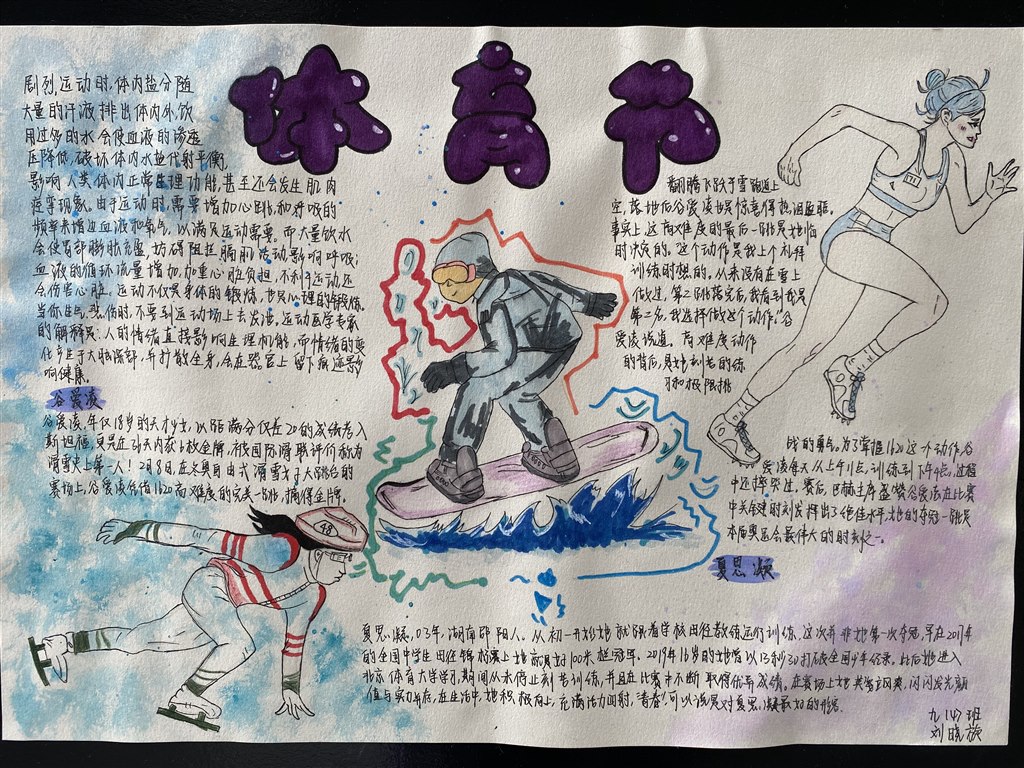 体育节
剧烈运动时,体内盐分随
大量的汗液排出体内外,饮
用过多的水会使血液的渗透
压降低,破坏体内水盐代射平衡,
影响人类体内正常生理功能,甚至还会发生肌肉
痉挛现象。由于运动时,需要增加心跳和呼吸的
频率来增边血液和氧气,以满足运动需要。而大量饮水
会使胃部膨胀充盈,妨碍阻赶膈肌活动影响呼吸;
血液的循环流量增加,加重心脏负担,不利于运动还
会伤害心脏。运动不仅是身体的锻炼,也是心理的锻炼。
当你生气,悲伤时,不要到运动场上去发泄。运动医学专家
的解释是:人的情绪直接影响生理机能,而情绪的变
化产生于大脑深部,并扩散全身,会在器官上留下痕迹影
响健康。
谷爱凌
谷爱凌,年仅18岁的天才少女,以距满分仅差20的成绩考入
斯坦福,更是在21天内获3枚金牌,被国际滑联评价称为
滑雪史上第一人!2月8日,在冬奥自由式滑雪女子大跳台的
赛场上,谷爱凌凭借1620高难度的完美一跳,摘得金牌,
翻腾飞跃于雪跑道上
空,落地后谷爱凌也是惊喜得热泪盈眶。
事实上,这高难度的最后一跳是她临
时决定的。这个动作是我上个礼拜
训练时想的,从来没有在雪上
做过,第二跳落完后,我看到我是
第二名,我选择做这个动作。谷
爱凌说道,高难度动作
的背后,是她刻苦的练
习和极限挑
战的勇气。为了掌握1620这个动作,谷
爱凌每天从上午11点,训练到下午4点,过程
中还摔哭过,赛后,巴赫主席盛赞谷爱凌在比赛
中关键的时刻发挥出了绝佳水平,她的夺冠一跳是
本届奥运会最伟大的时刻之一。
夏思凝
夏思凝,03年,湖南邵阳人。从初一开始她就跟着学校田径教练远们训练,这次并非她第一次夺冠,早在2017年
的全国中学生田径锦标赛上她赢得女子100米栏冠军。2019年16岁的她曾以13秒30打破全国少年纪录。此后她进入
北京体育大学学习,期间从未停止刻苦训练,并且在比赛中不断取得优异成绩。在赛场上她英姿飒爽,闪闪发光,颜
值与实力并存,在生活中,她积极向上,充满活力四射,“青春”可以说是对夏思凝最好的形容。
九147班
刘晓旅
48